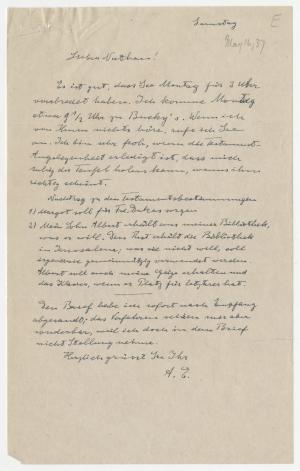 Samstag
E
May 16, 37
Lieber Nathan!
Es ist gut, dass Sie Montag für 3 Uhr
verabredet haben. Ich komme Montag
etwa 9 1/2 Uhr zu Bucky's. Wenn ich
von Ihnen nichts höre, rufe ich Sie
an. Ich bin sehr froh, wenn die Testament-
Angelegenheit erledigt ist, dass mich
ruhig der Teufel holen kann, wenn's ihm
richtig scheint.
Nachtrag zu den Testamentsbestimmungen
1) Margot soll für Frl. Dukas sorgen
2) Mein Sohn Albert erhält aus meiner Bibliothek,
was er will. Den Rest erhält die Bibliothek
in Jerusalem; was sie nicht will, soll
irgendwie gemeinnützig verwendet werden.
Albert soll auch meine Geige erhalten und
das Klavier, wenn er Platz für letzteres hat.
Den Brief habe ich sofort nach Empfang
abgesandt; das Verfahren
sonderbar, weil ich doch in dem Brief
nicht Stellung nehme.
Herzlich grüsst Sie Ihr
A. E.